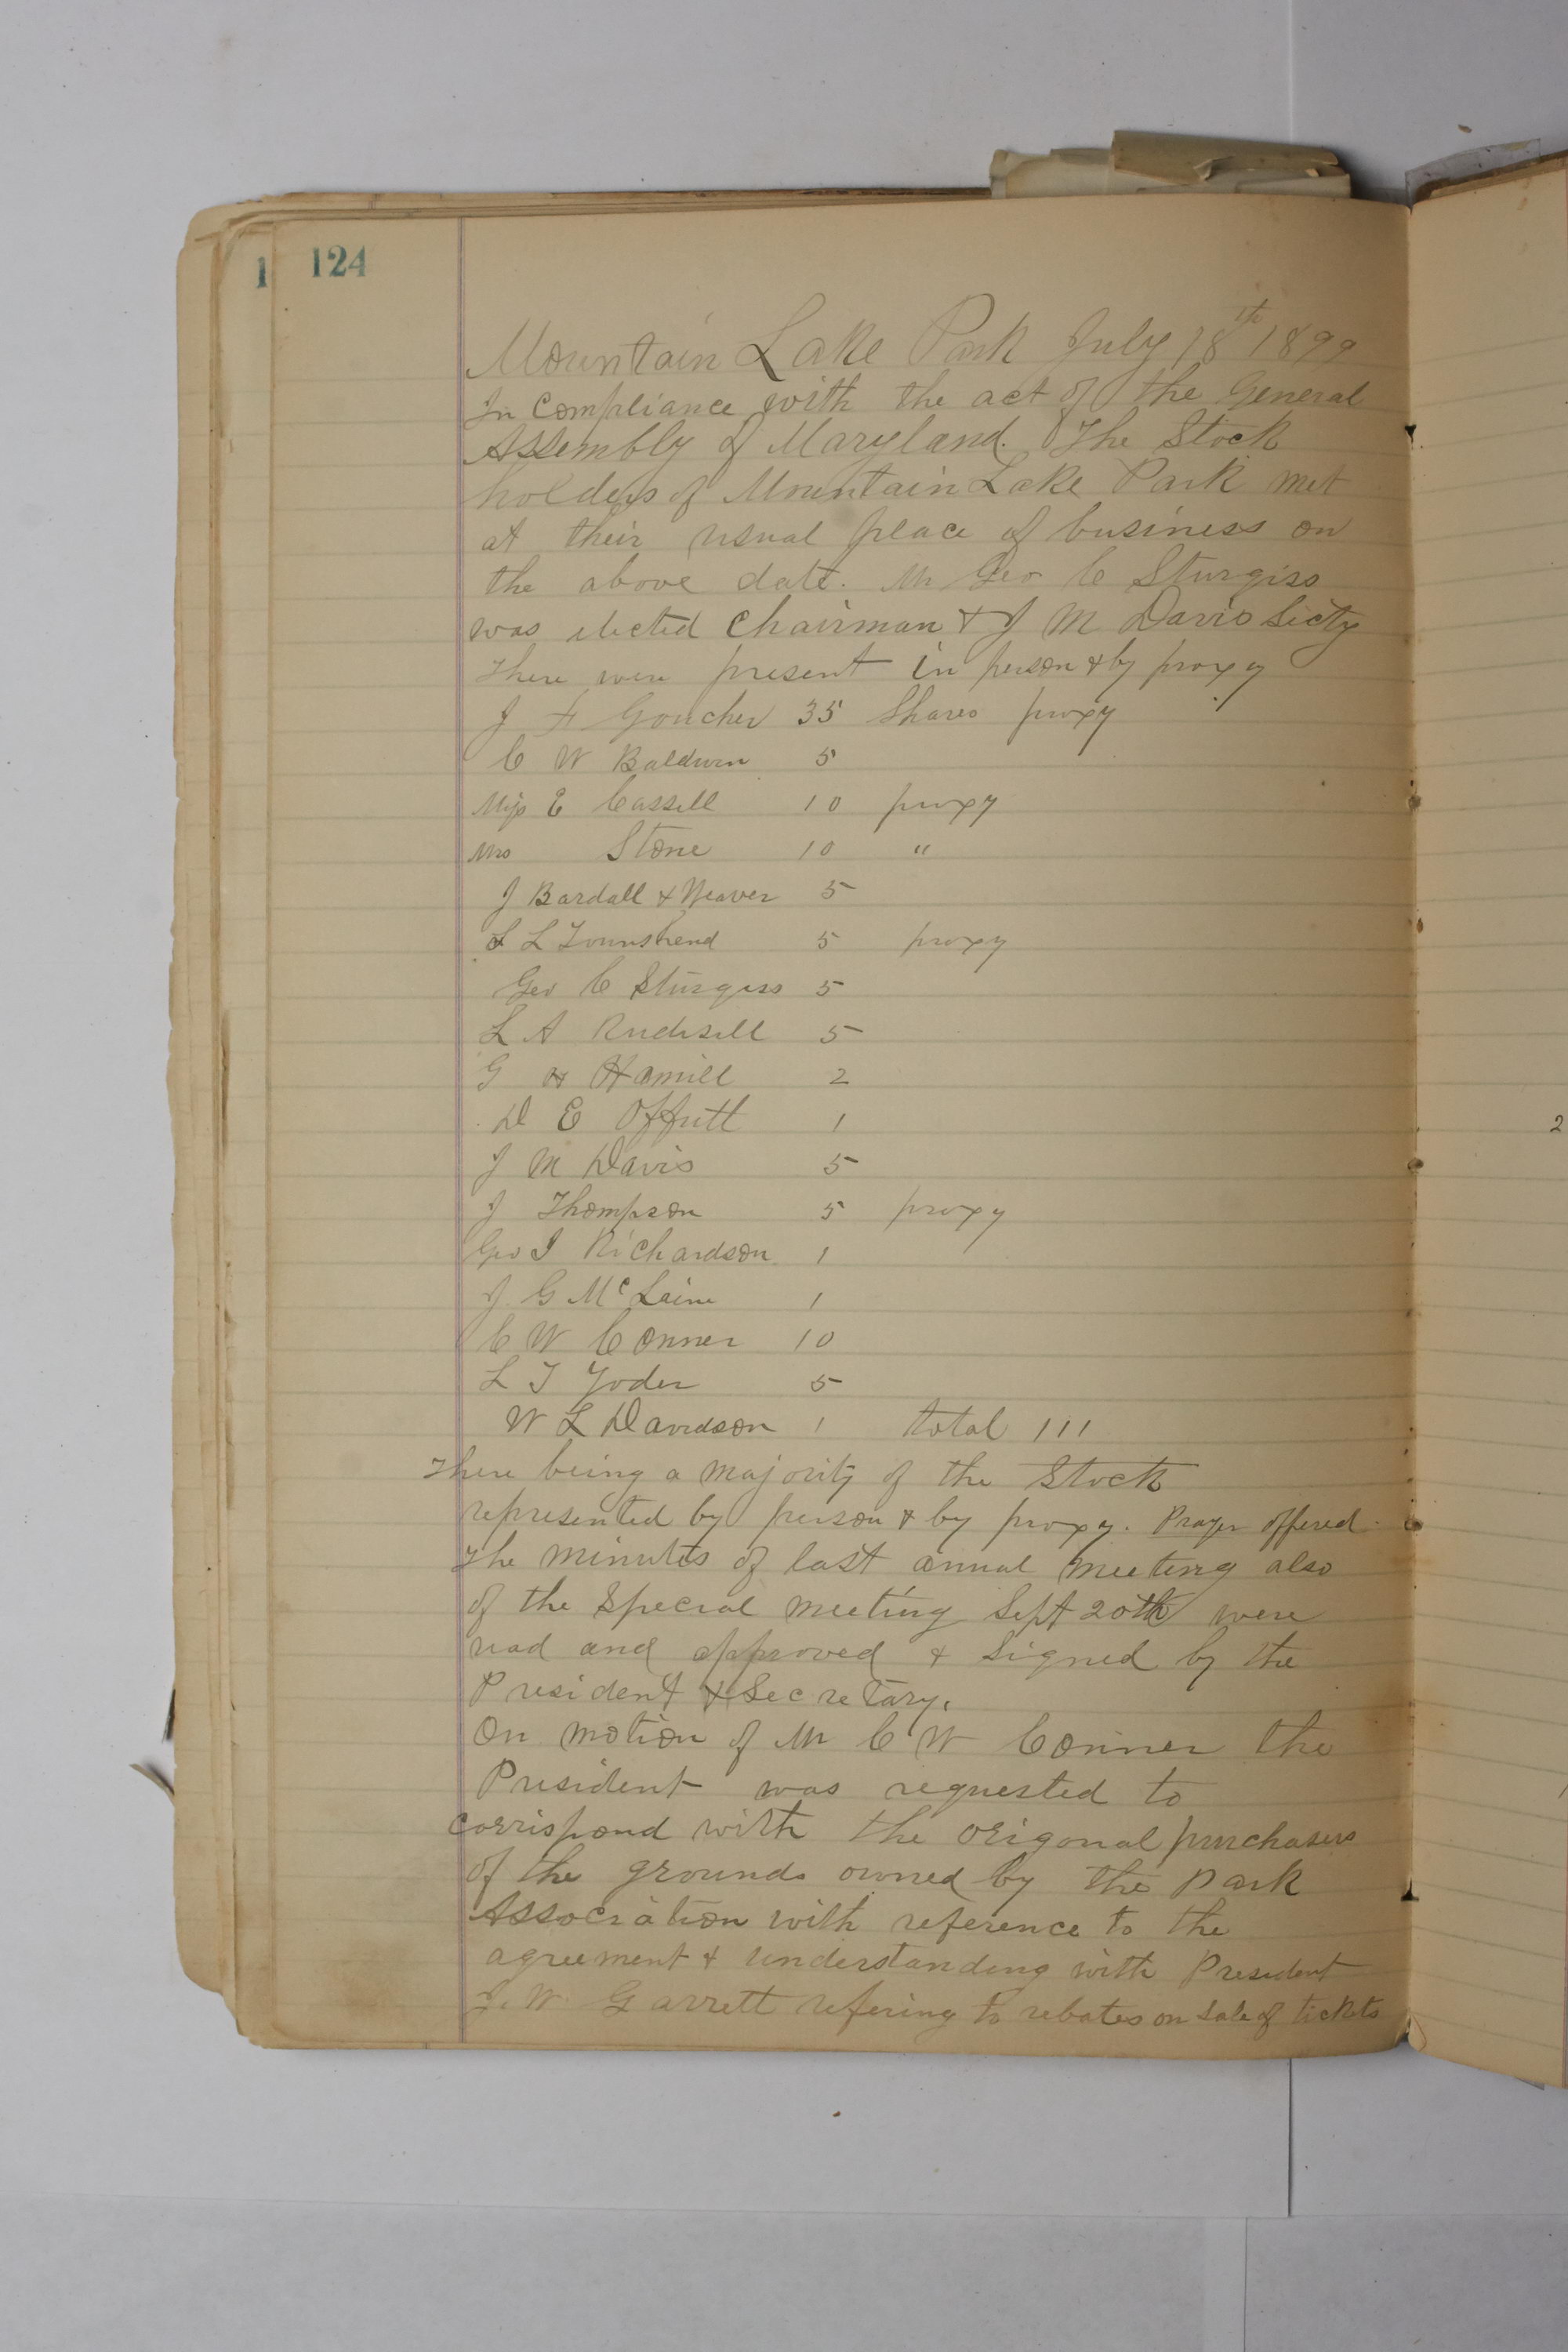 124
Mountain Lake Park July 18th 1899
In Compliance with the act of the General
Assembly of Maryland. The Stock
holders of Mountain Lake Park met
at their usual place of business on
the above date. Mr Geo C Sturgiss
was elected Chairman & J M Davis Secty
There were present in person & by proxy
J F Goucher 35 Shares proxy
C W Baldwin 5
Miss E Cassell 10 proxy
Mrs Stone 10 "
J Bardall & Weaver 5
L L Townshend 5 proxy
Geo C Sturgiss 5
L A Rudisill 5
G H Hamill 2
D E Offutt 1
J M Davis 5
J Thompson 5 proxy
Geo I Richardson 1
J. G McLaine 1
C W Conner 10
L T Yoder 5
W L Davidson 1 total 111
There being a majority of the Stock
represented by person & by proxy. Prayer offered.
The minutes of last annual meeting also
of the Special meeting Sept 20th were
read and approved & signed by the
President & Secretary.
On motion of Mr C W Conner the
President was requested to
corrispond with the origonal purchasers
of the grounds owned by the Park
Association with reference to the
agreement & understanding with President
J. W. Garrett refering to rebates on sale of tickets
2